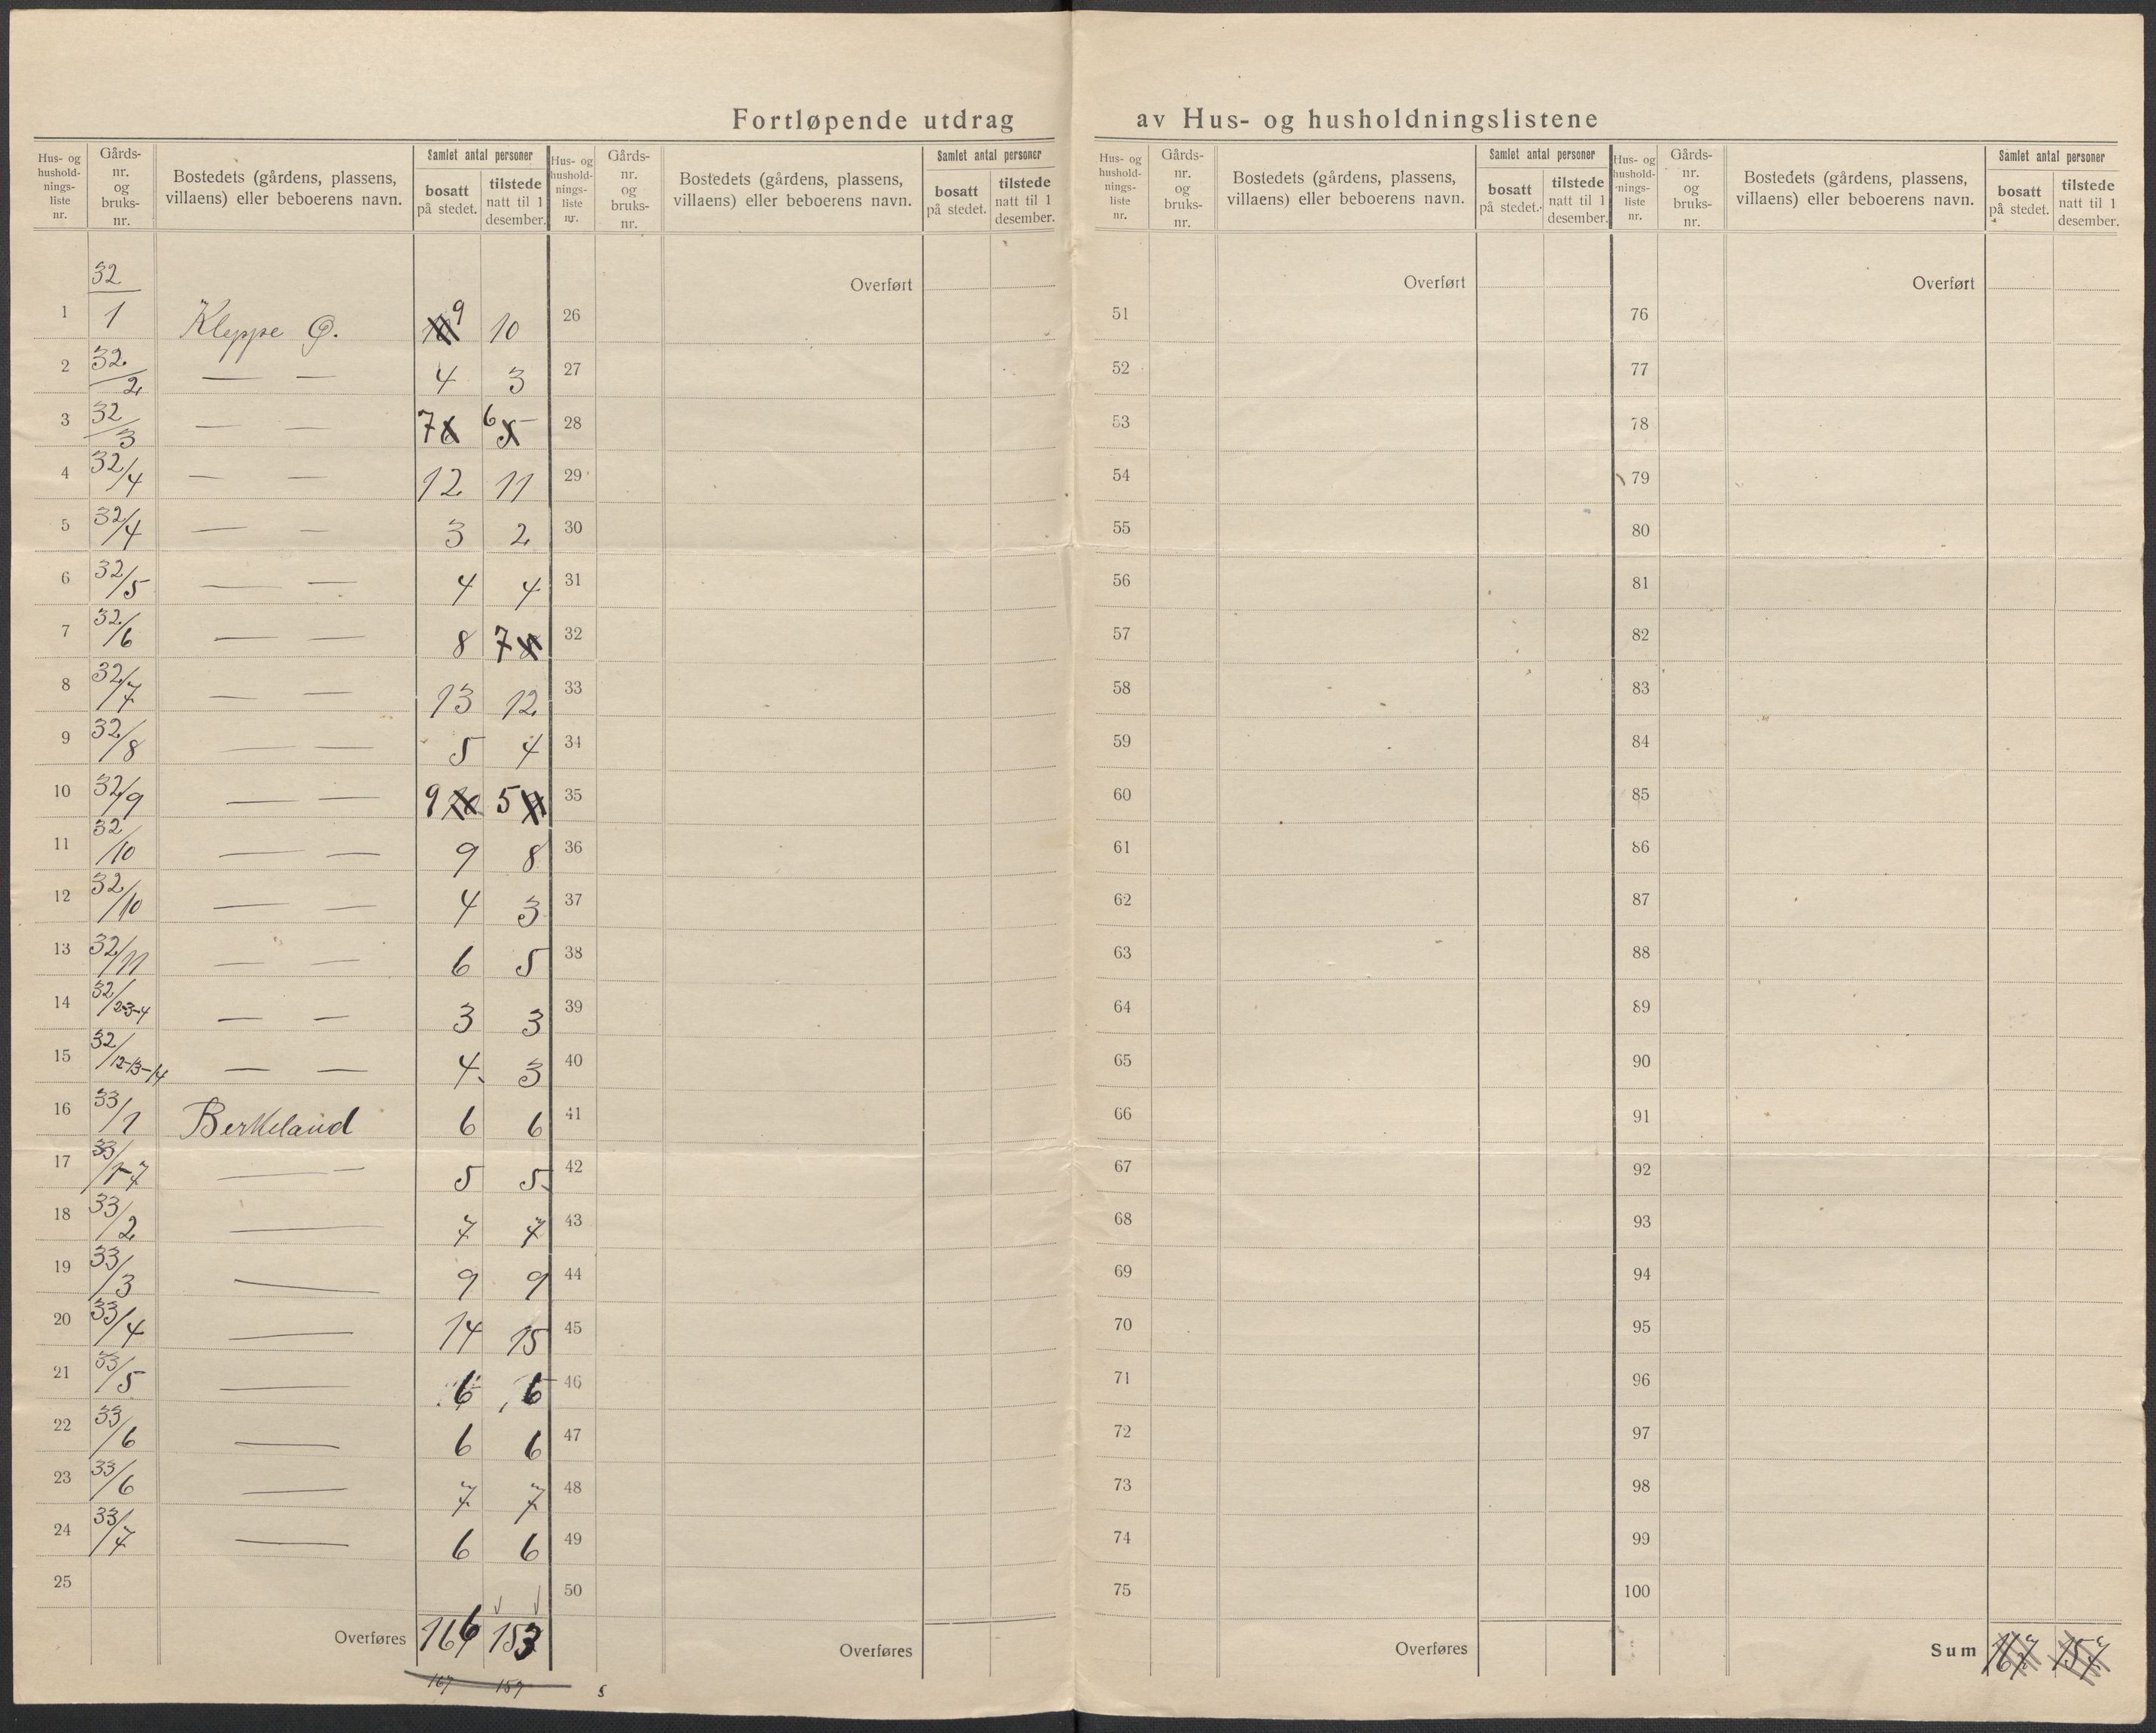 Fortløpende utdrag av Hus- og husholdningslistene
Hus- og hushold-nings-liste nr. Gårds-nr. og bruks-nr. Bostedets (gårdens, plassens, villaens) eller beboerens navn. Samlet antal personer bosatt på stedet. tilstede natt til 1 desember.
Hus- og hushold-nings-liste nr. Gårds-nr. og bruks-nr. Bostedets (gårdens, plassens, villaens) eller beboerens navn. Samlet antal personer bosatt på stedet. tilstede natt til 1 desember.
Hus- og hushold-nings-liste nr. Gårds-nr. og bruks-nr. Bostedets (gårdens, plassens, villaens) eller beboerens navn. Samlet antal personer bosatt på stedet. tilstede natt til 1 desember.
Hus- og hushold-nings-liste nr. Gårds-nr. og bruks-nr. Bostedets (gårdens, plassens, villaens) eller beboerens navn. Samlet antal personer bosatt på stedet. tilstede natt til 1 desember.
Overført Overført Overført
1 32/1 Kleppe Ø. 9 10 26 51 76
2 32/2 — — 4 3 27 52 77
3 32/3 — — 7 6 28 53 78
4 32/4 — — 12 11 29 54 79
5 32/4 — — 3 2 30 55 80
6 32/5 — — 4 4 31 56 81
7 32/6 — — 8 7 32 57 82
8 32/7 — — 13 12 33 58 83
9 32/8 — — 5 4 34 59 84
10 32/9 — — 9 5 35 60 85
11 32/10 — — 9 8 36 61 86
12 32/10 — — 4 3 37 62 87
13 32/11 — — 6 5 38 63 88
14 32/2-3-4 — — 3 3 39 64 89
15 32/12-13-14 — — 4 3 40 65 90
16 33/1 Berkeland 6 6 41 66 91
17 33/1-7 — — 5 5 42 67 92
18 33/2 — 7 7 43 68 93
19 33/3 — 9 9 44 69 94
20 33/4 — 14 15 45 70 95
21 33/5 — 6 6 46 71 96
22 33/6 — 6 6 47 72 97
23 33/6 — 7 7 48 73 98
24 33/7 — 6 6 49 74 99
25 50 75 100
Overføres 166 153 Overføres Overføres Sum 167 157
167 159 5